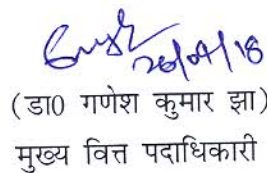 26/04/18
(डा0 गणेश कुमार झा)
मुख्य वित्त पदाधिकारी